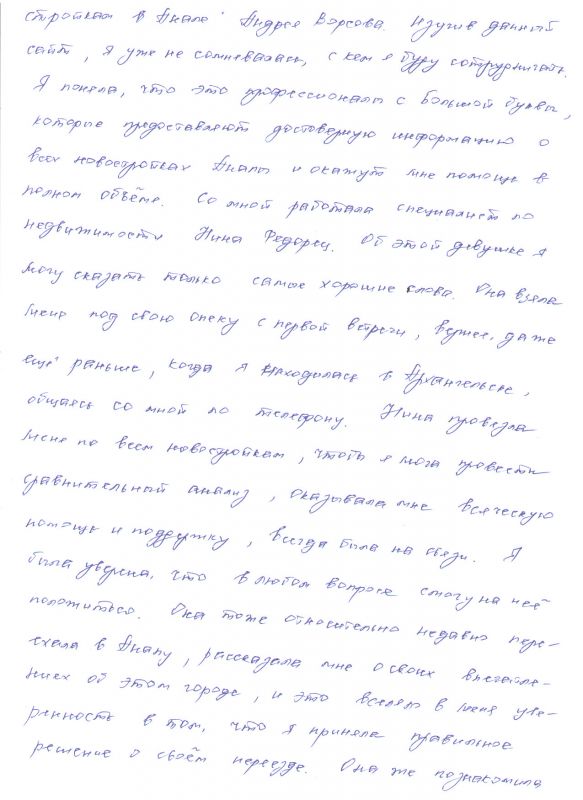 стройкам в Анапе" Андрея Ворсова. Изучив данный
сайт, я уже не сомневалась, с кем я буду сотрудничать.
Я поняла, что это профессионалы с большой буквы,
которые предоставляют достоверную информацию о
всех новостройках Анапы и окажут мне помощь в
полном объёме. Со мной работала специалист по
недвижимости Нина Федорец. Об этой девушке я
могу сказать только самые хорошие слова. Она взяла
меня под свою опеку с первой встречи, вернее, даже
ещё раньше, когда я находилась в Архангельске,
общаясь со мной по телефону. Нина провезла
меня по всем новостройкам, чтобы я могла провести
сравнительный анализ, оказывала мне всяческую
помощь и поддержку, всегда была на связи. Я
была уверена, что в любом вопросе смогу на неё
положиться. Она тоже относительно недавно пере-
ехала в Анапу, рассказала мне о своих впечатле-
ниях об этом городе, и это вселяло в меня уве-
ренность в том, что я приняла правильное
решение о своём переезде. Она же познакомила